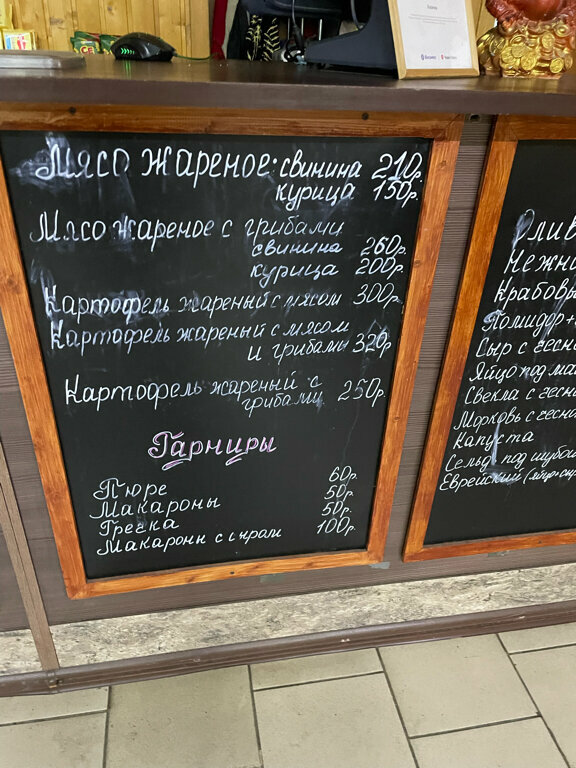 Мясо жареное: свинина 210р.
курица 150р.
Мясо жареное с грибами
свинина 260р.
курица 200р.
Картофель жареный с мясом 300р.
Картофель жареный с мясом
и грибамы 320р
Картофель жареный с
грибами 250р.
Гарниры
Пюре 60р.
Макароны 50р.
Гречка 50р.
Макароны с сыром 100р.
Олив
Нежни
Крабовы
Помидор+
Сыр с чесн
Яйцо под ма
Свекла с чесн
Морковь с чесн
Капуста
Сельд. под шубо
Еврейский (яйцо+сыр